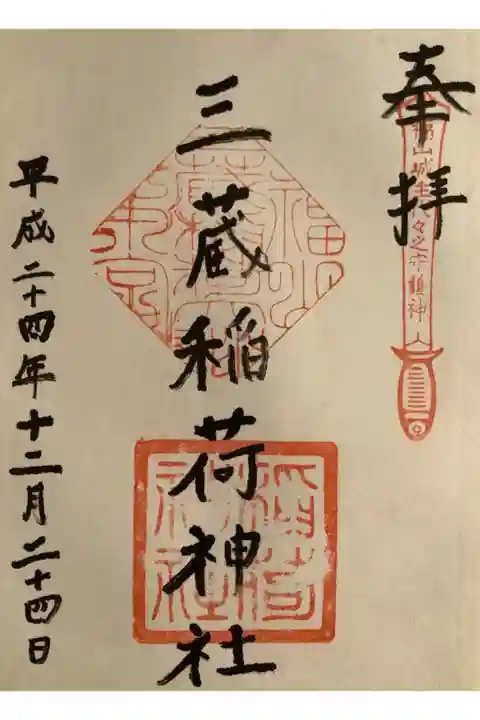 奉拝
福山城主代々之守護神
三蔵稲荷神社
平成二十四年十二月二十四日